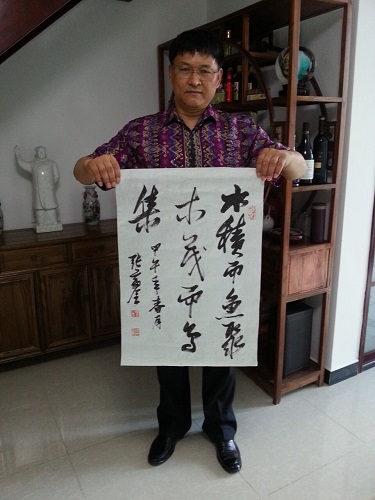 水積而魚聚
木茂而鳥
集
甲午年春月